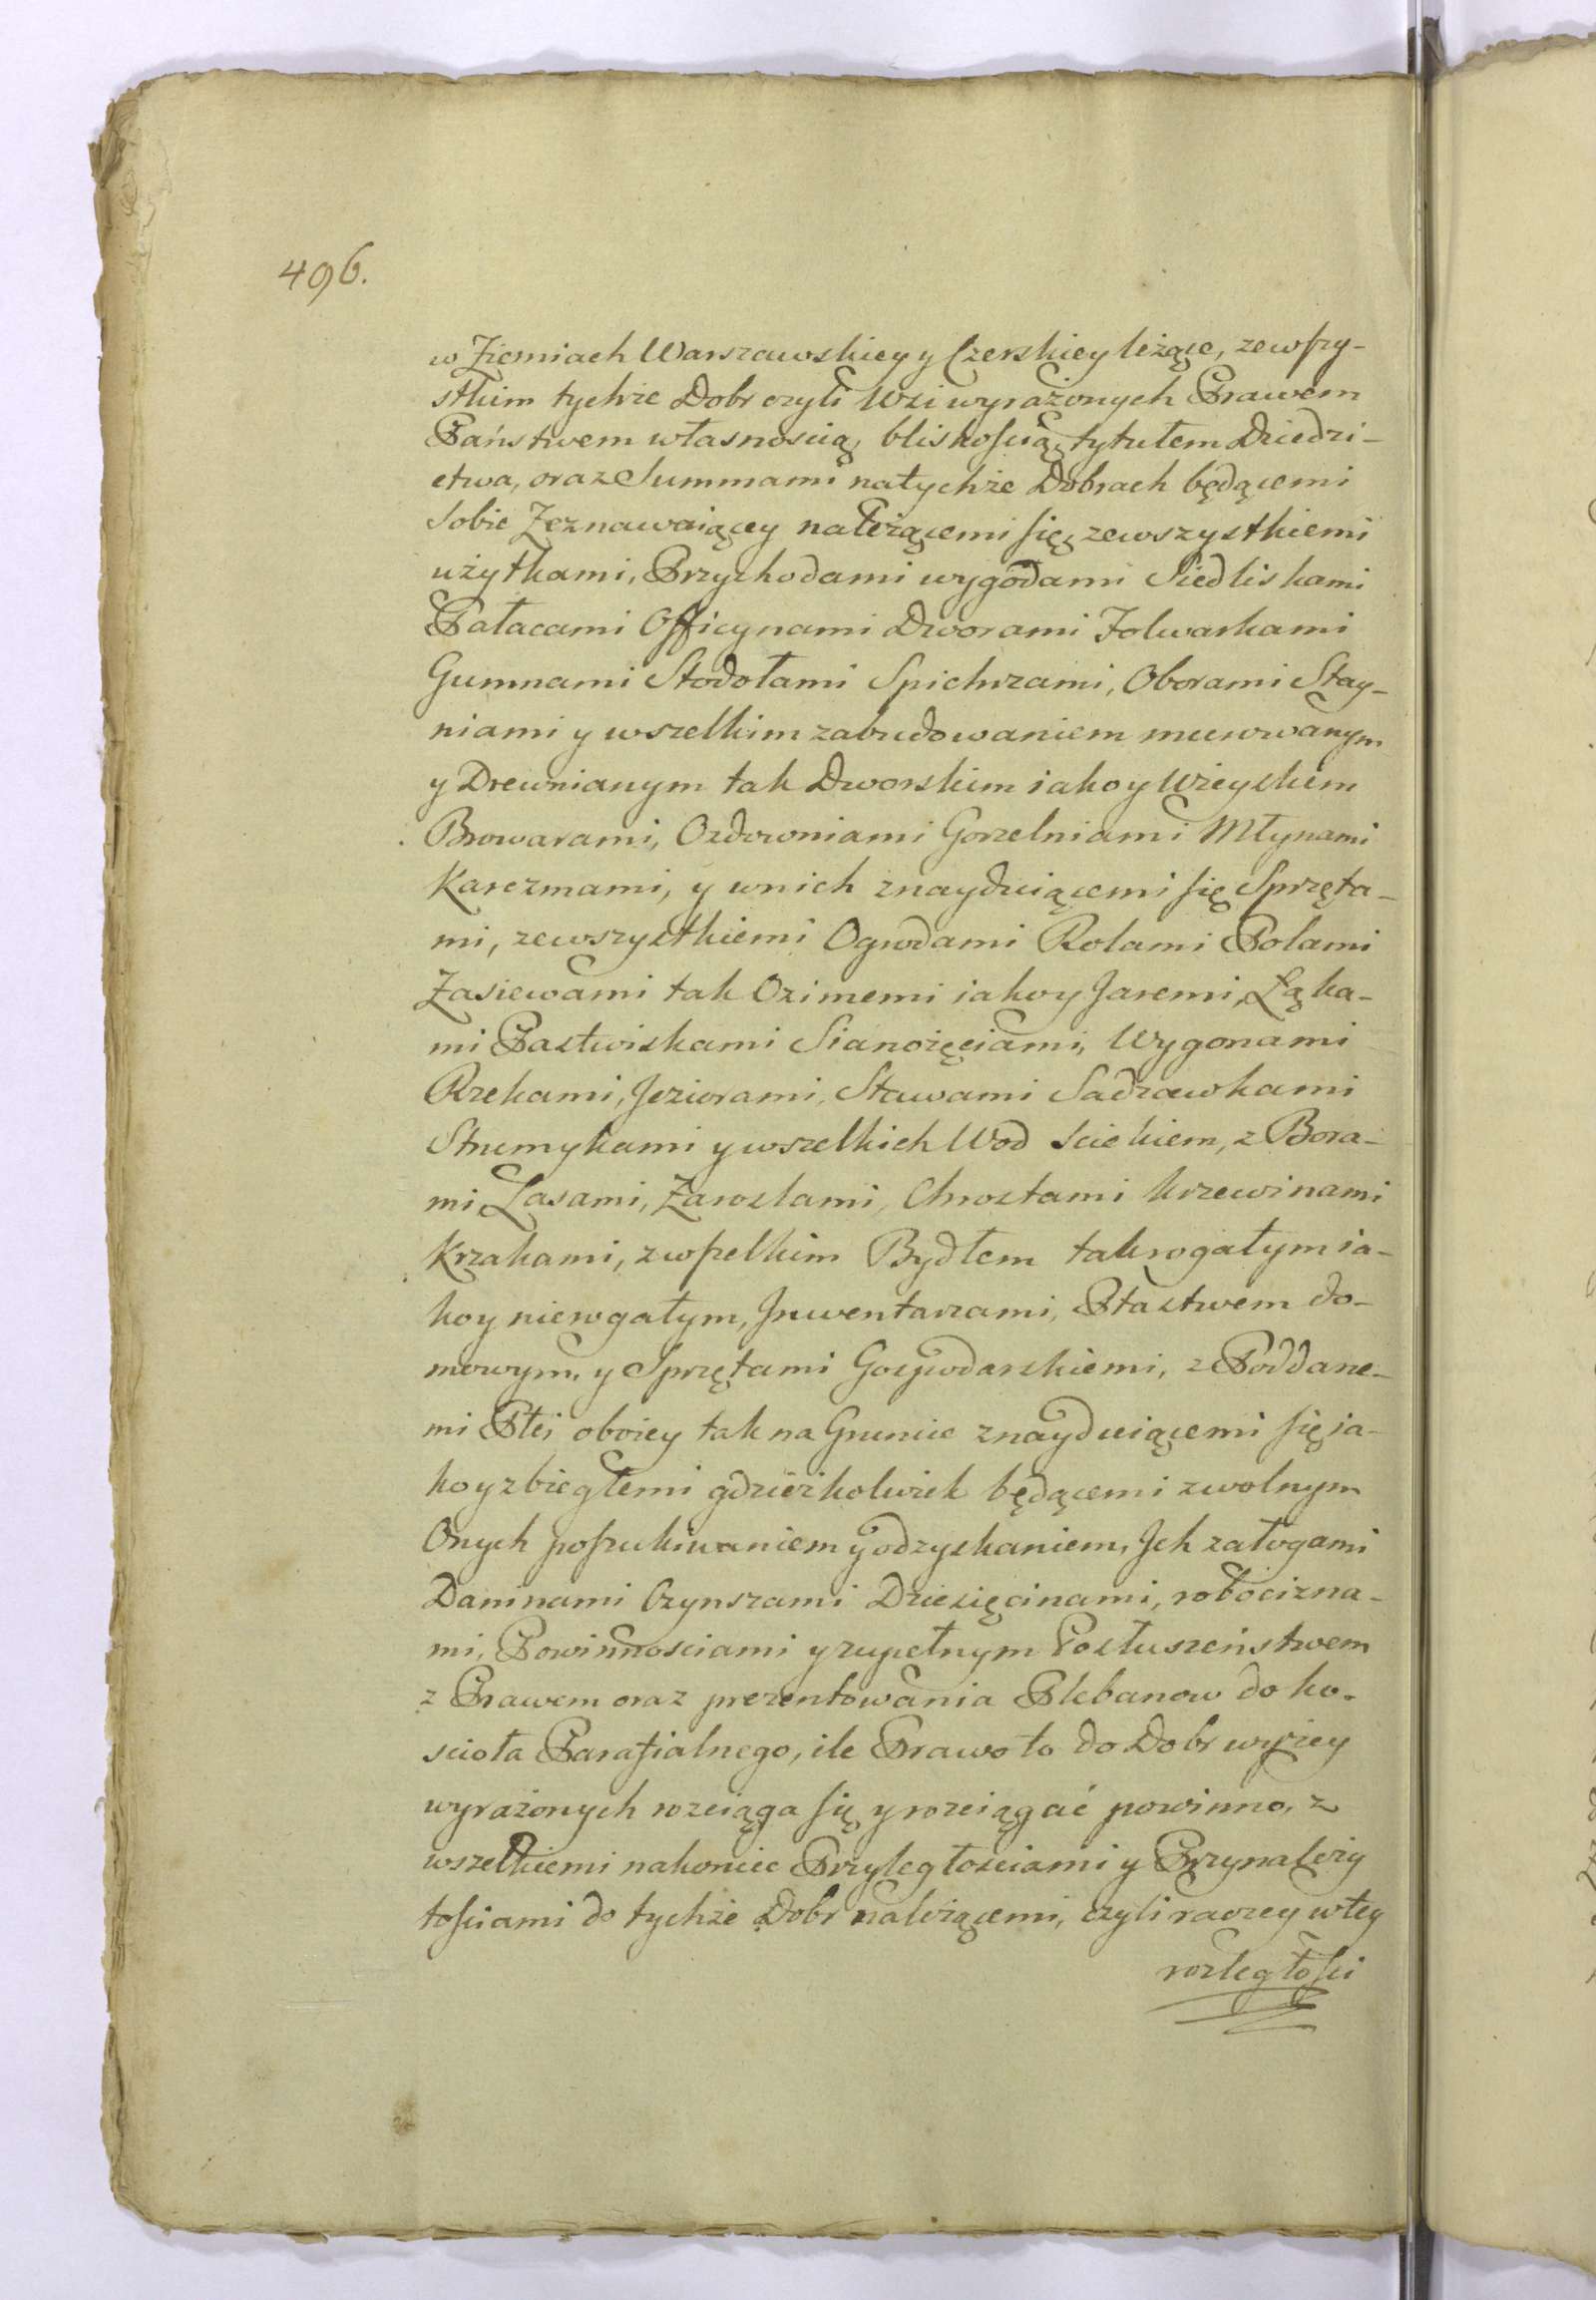 496.
w Ziemiach Warszawskiey y Czerskiey leżące, zewszy-
stkim tychże Dobr czyli Wsi wyrażonych Prawem
Państwem własnością, bliskością, tytułem Dziedzi-
ctwa, oraz Summami natychże Dobrach będącemi
Sobie Zeznawaiącey należącemi się, zewszystkiemi
użytkami, Przychodami wygodami Siedliskami
Pałacami Officynami Dworami Folwarkami
Gumnami Stodołami Spichrzami, Oborami Stay-
niami y wszelkim zabudowaniem murowanym
y Drewnianym tak Dworskim iako y Wieyskim
Browarami, Ozdowniami Gorzelniami Młynami
Karczmami, y wnich znayduiącemi się Sprzęta-
mi, zewszystkiemi Ogrodami Rolami Polami
Zasiewami tak Ozimemi iako y Jaremi, Łąka-
mi Pastwiskami Sianożęciami, Wygonami
Rzekami, Jeziorami, Stawami Sadzawkami
Strumykami y wszelkich Wod Sciekiem, z Bora-
mi, Lasami, Zaroslami, Chrostami krzewinami
Krzakami, z wszelkim Bydłem tak rogatym ia-
ko y nierogatym, Jnwentarzami, Ptastwem do-
mowym, y Sprzętami Gospodarskiemi, z Poddane-
mi Płci oboiey tak na Gruncie znayduiącemi się ia-
ko y zbiegłemi gdzieżkolwiek będącemi z wolnym
Onych poszukiwaniem y odzyskaniem, Jch załogami
Daninami Czynszami Dziesięcinami, robocizna-
mi, Powinnosciami y zupełnym Posłuszeństwem
z Prawem oraz prezentowania Plebanow do ko-
scioła Parafialnego, ile Prawo to do Dobr wyżey
wyrażonych rozciąga się y rozciągać powinno, z
wszelkiemi nakoniec Przyległościami y Przynależy
tościami do tychże Dobr należącemi, czyli raczey w tey
rozległości